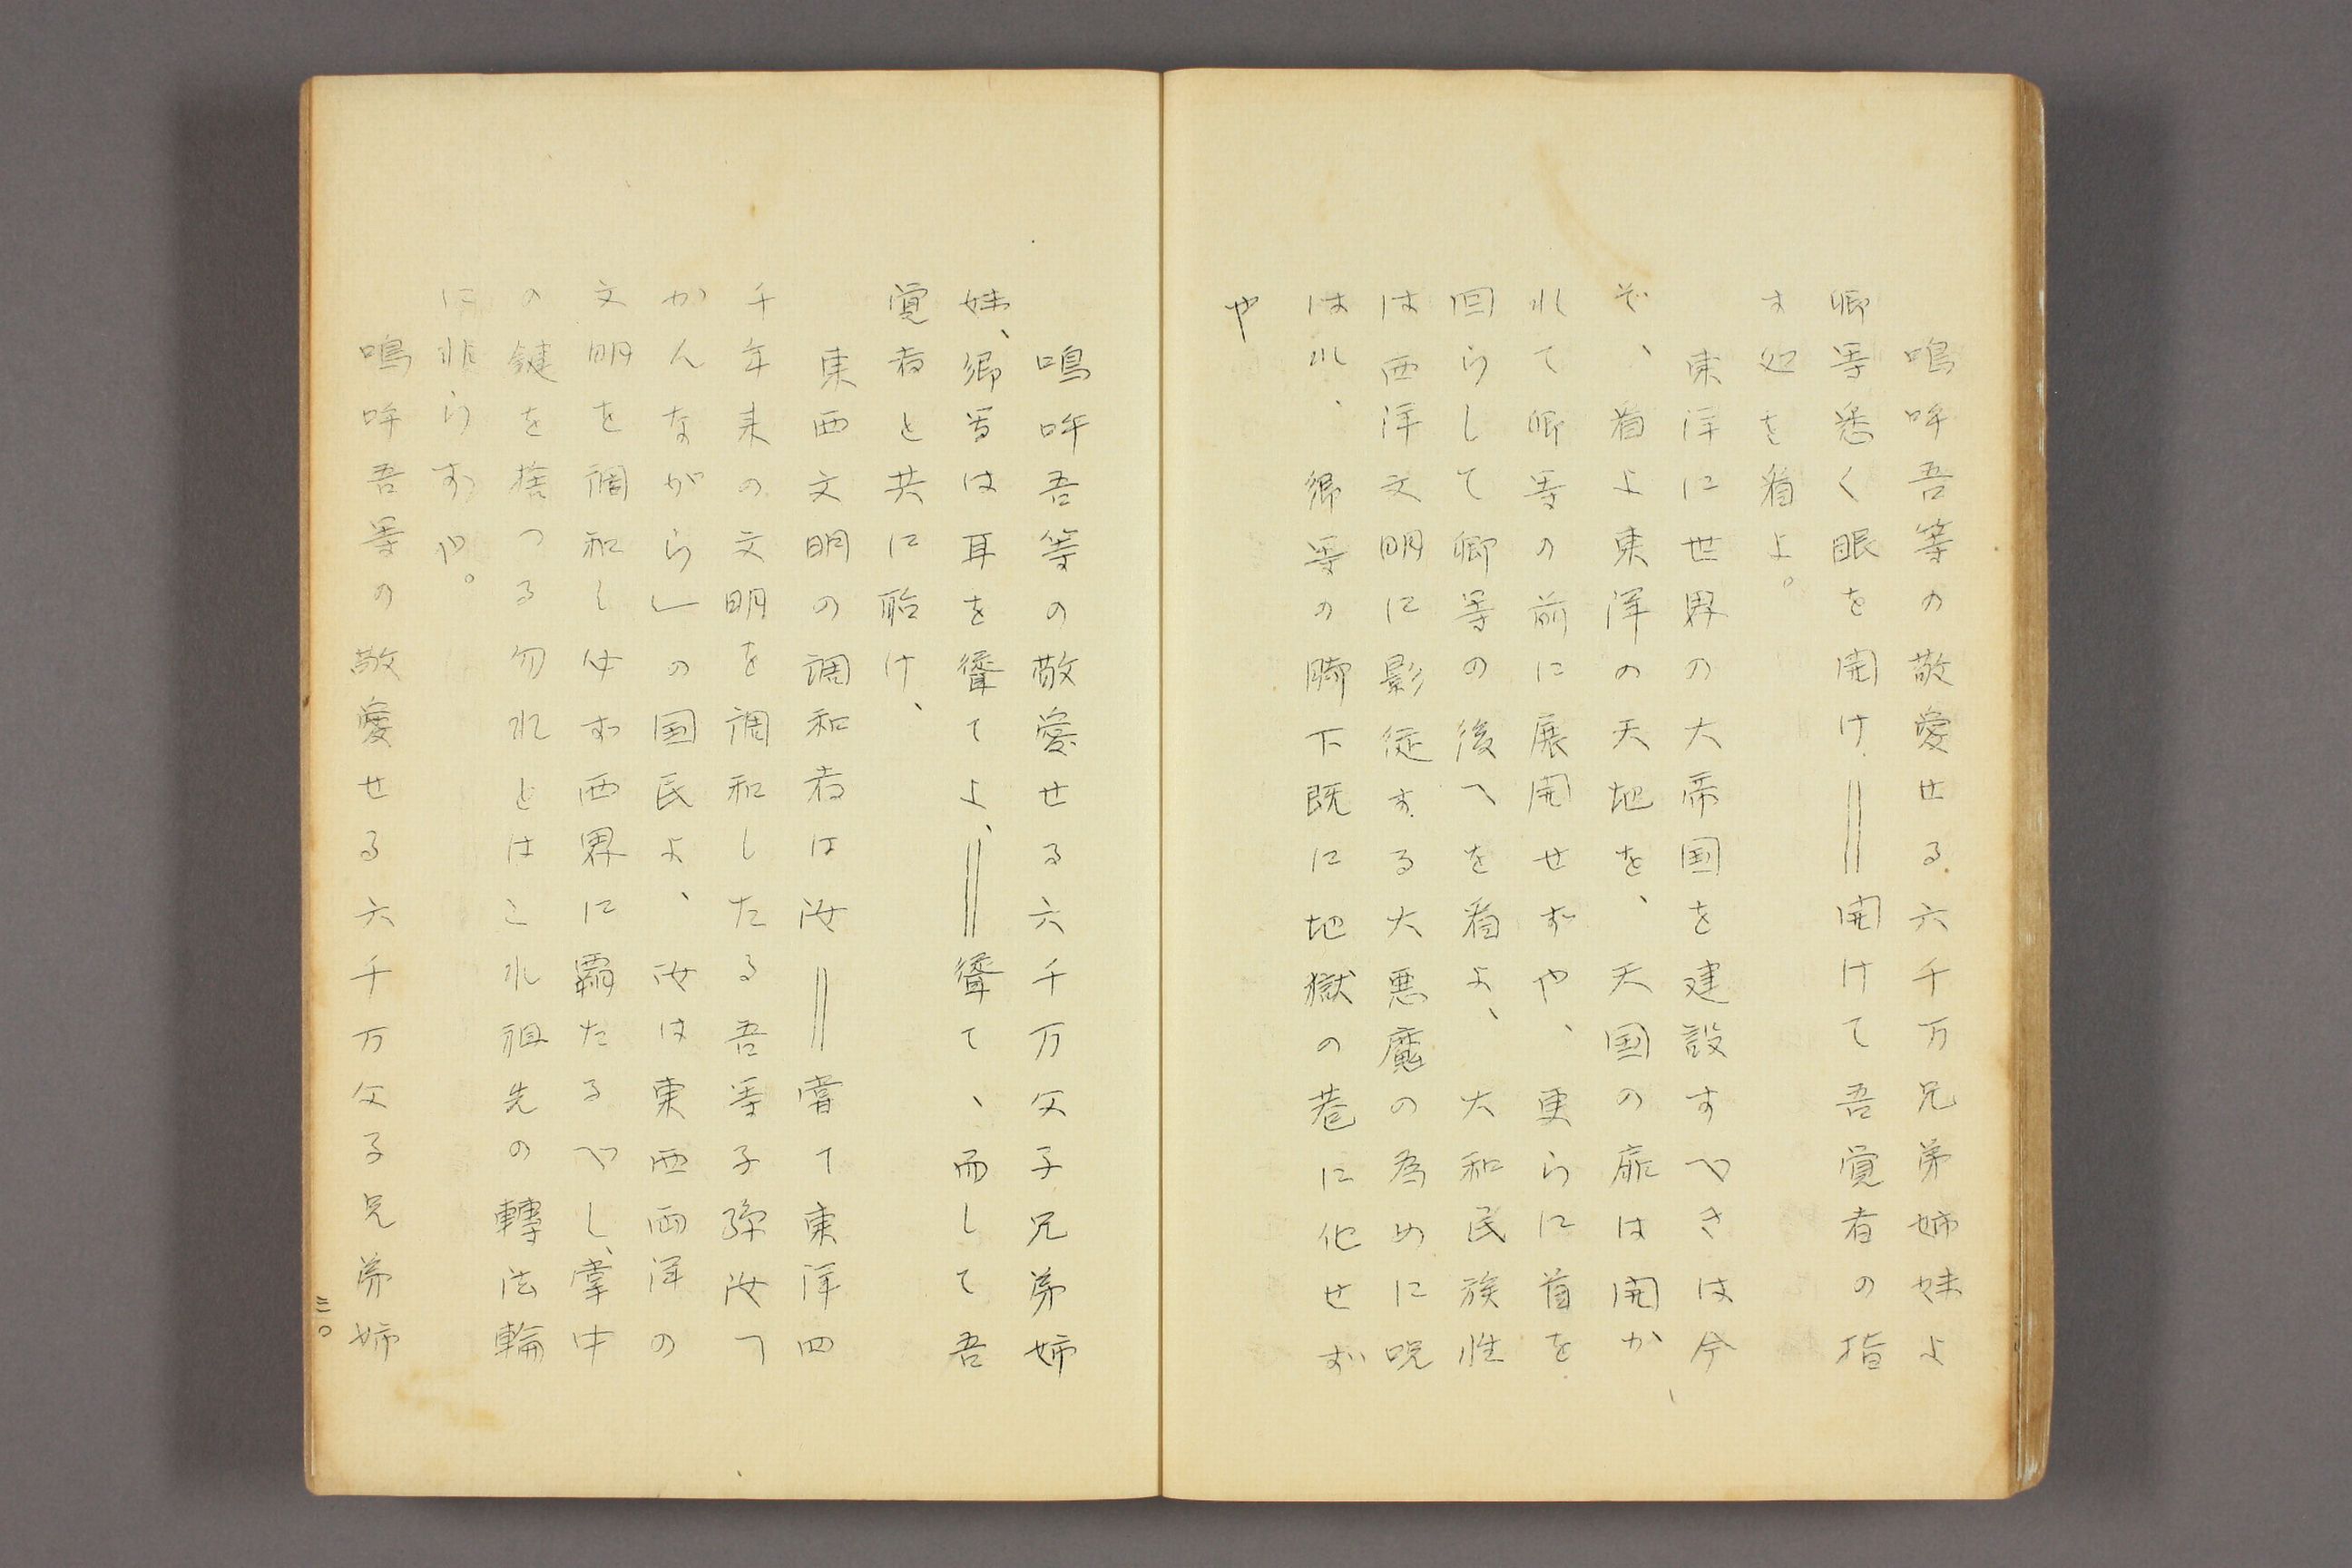 嗚呼吾等の敬愛せる六千万兄弟姉妹よ
卿等悉く眼を開け、||開けて吾覚者の指
す処を看よ。
東洋に世界の大帝国を建設すべきは今
ぞ、看よ東洋の天地を、天国の扉は開か
れて卿等の前に展開せずや、更らに首を
回らして卿等の後へを看よ、大和民族性
は西洋文明に影従する大悪魔の為めに呪
はれ、卿等の脚下既に地獄の巷に化せず
や
嗚呼吾等の敬愛せる六千万父子兄弟姉
妹、卿等は耳を聳てよ、||聳て、而して吾
覚者と共に聆け、
東西文明の調和者は汝||嘗て東洋四
千年来の文明を調和したる吾等子孫汝「
かんながら」の国民よ、汝は東西両洋の
文明を調和し併せ西界に覇たるべし、掌中
の鍵を捨つる勿れとはこれ祖先の轉法輪
に非らずや。
嗚呼吾等の敬愛せる六千万父子兄弟姉
三〇